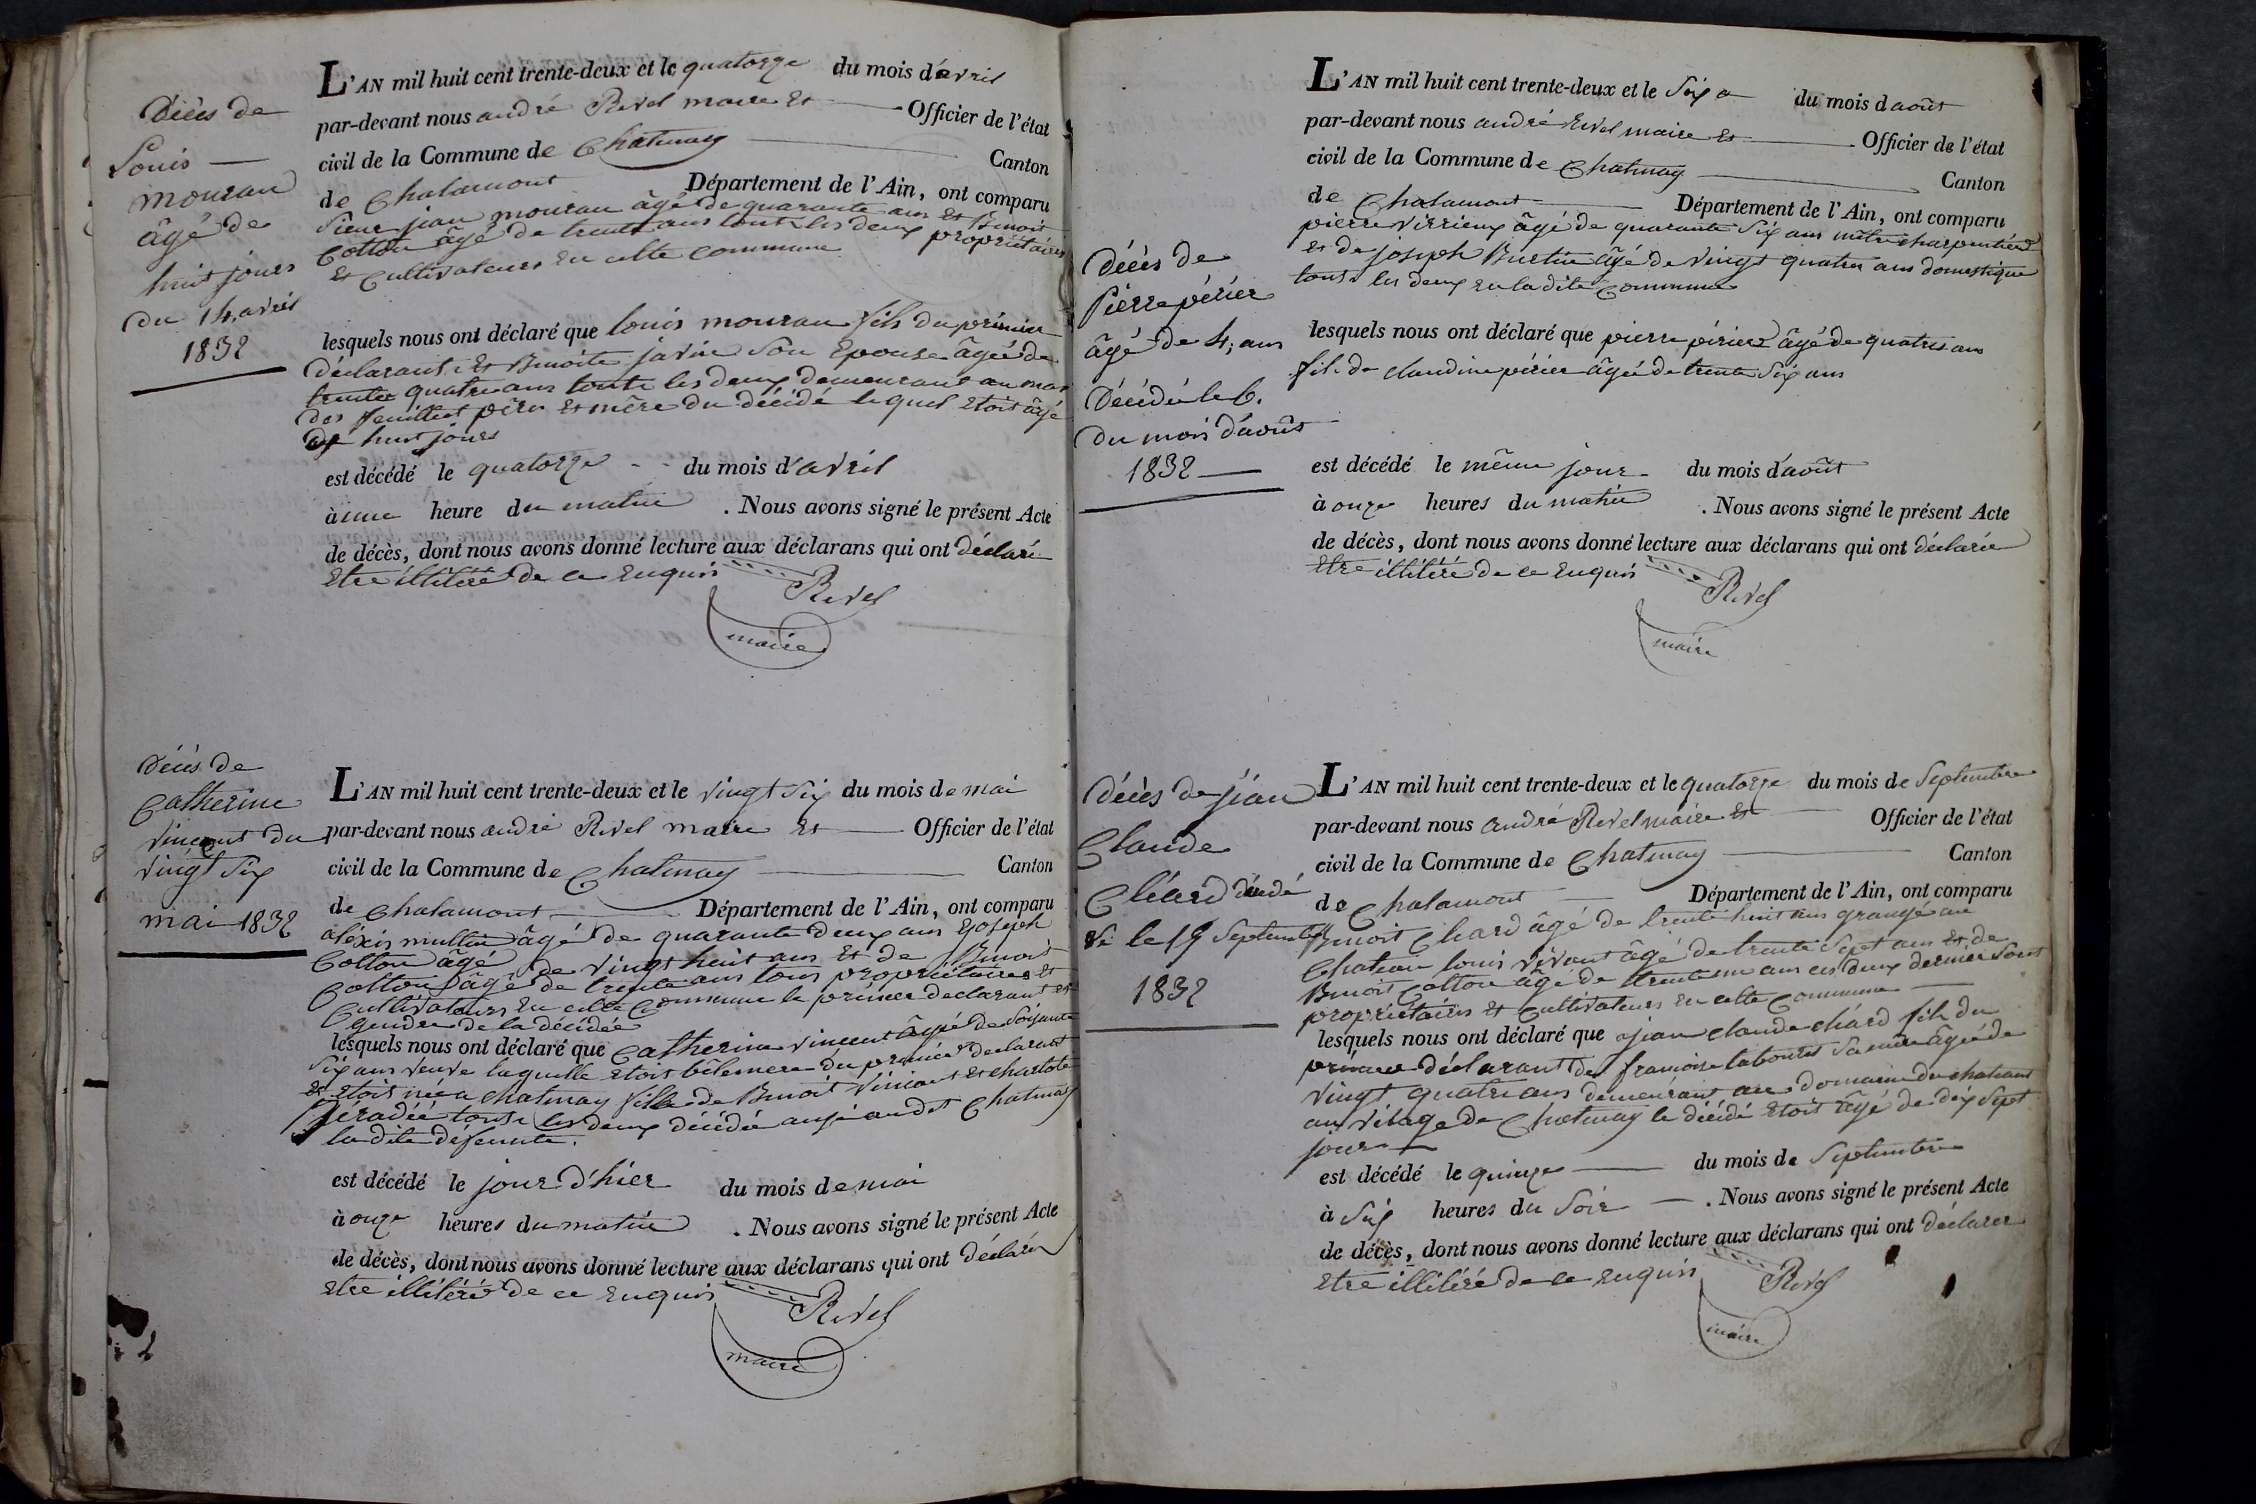 Décès de
Louis
mouran
âgé de
huit jours
du 14 avril
1832
L'AN mil huit cent trente-deux et le quatorze du mois d'avril
par-devant nous andré Rivel maire et Officier de l'état
civil de la Commune de Chatenay Canton
de Chalamont Département de l'Ain, ont comparu
Sieur jean mouran âgé de quarante ans et Benoit
Cotton âgé de trente ans tout les deux propriétaires
et Cultivateurs en cette commune
lesquels nous ont déclaré que louis mouran fils du prémier
déclarant et Benoite javin son Epouse âgée de
trente quatre ans toute les deux demeurant au mas
des feuillet père et mère du décédé lequel etoit âgé
de huit jours
est décédé le quatorze du mois d'avril
à une heure du matin . Nous avons signé le présent Acte
de décès, dont nous avons donné lecture aux déclarans qui ont déclaré
etre illitéré de ce enquis
Rivel
maire
Décès de
Catherine
vincent du
vingt six
mai 1832
L'AN mil huit cent trente-deux et le vingt six du mois de mai
par-devant nous andré Rivel maire et Officier de l'état
civil de la Commune de Chatenay Canton
de Chalamont Département de l'Ain, ont comparu
aléxis multin âgé de quarante deux ans Ejoseph
Cotton âgé de vingt huit ans et de Benoit
Cotton âgé de trente ans tous propriétaires et
Cultivateurs en cette Commune le prémier declarant est
gendre de la décédée
lesquels nous ont déclaré que Catherine vincent âgée de soixante
six ans veuve laquelle etoit bélemere du premier declarant
et etoit née a chatenay fille de Benoit vincent et charlote
toute les deux décédée aussi audit Chatenay
la dite defeunte.
est décédé le jour d'hier du mois de mai
à onze heures du matin . Nous avons signé le présent Acte
de décès, dont nous avons donné lecture aux déclarans qui ont déclaré
etre illitéré de ce enquis
Rivel
maire
Décès de
Pierre périer
âgé de 4, ans
Décédé le 6.
du mois d'août
1832
L'AN mil huit cent trente-deux et le Six a du mois d août
par-devant nous andré Rivel maire et Officier de l'état
civil de la Commune de Chatenay Canton
de Chalamont Département de l'Ain, ont comparu
pierre virrieux âgé de quarante six ans mêtre charpentier
et de joseph Burtin âgé de vingt quatre ans domestique
touts les deux en la dite Commune
lesquels nous ont déclaré que pierre périer âgé de quatre ans
fils de claudine périer âgée de trente six ans
est décédé le même jour du mois d'août
à onze heures du matin . Nous avons signé le présent Acte
de décès, dont nous avons donné lecture aux déclarans qui ont déclarée
etre illitéré de ce enquis
Rivel
maire
Décès de jean
Claude
Chard décédé
le 15 septembre
1832
L'AN mil huit cent trente-deux et le quatorze du mois de Septembre
par-devant nous andré Rivel maire et Officier de l'état
civil de la Commune de Chatenay Canton
de Chalamont Département de l'Ain, ont comparu
Benoit Chard âgé de trente huit ans grangé au
Chateau louis vivant âgé de trente sept ans et de
Benoit Cotton âgé de trente un ans ces deux dernier sont
propriétaires et Cultivateurs en cette Commune
lesquels nous ont déclaré que jean claude chard fils du
prémier déclarant de framoise labouret sa mère âgée de
vingt quatre ans demeurant au domaine du chateau
au vilage de Chatenay le décédé etoit âgé de dix sept
jours
est décédé le quinze du mois de Septembre
à six heures du Soir . Nous avons signé le présent Acte
de décès, dont nous avons donné lecture aux déclarans qui ont déclarer
etre illitéré de ce enquis
Rivel
maire